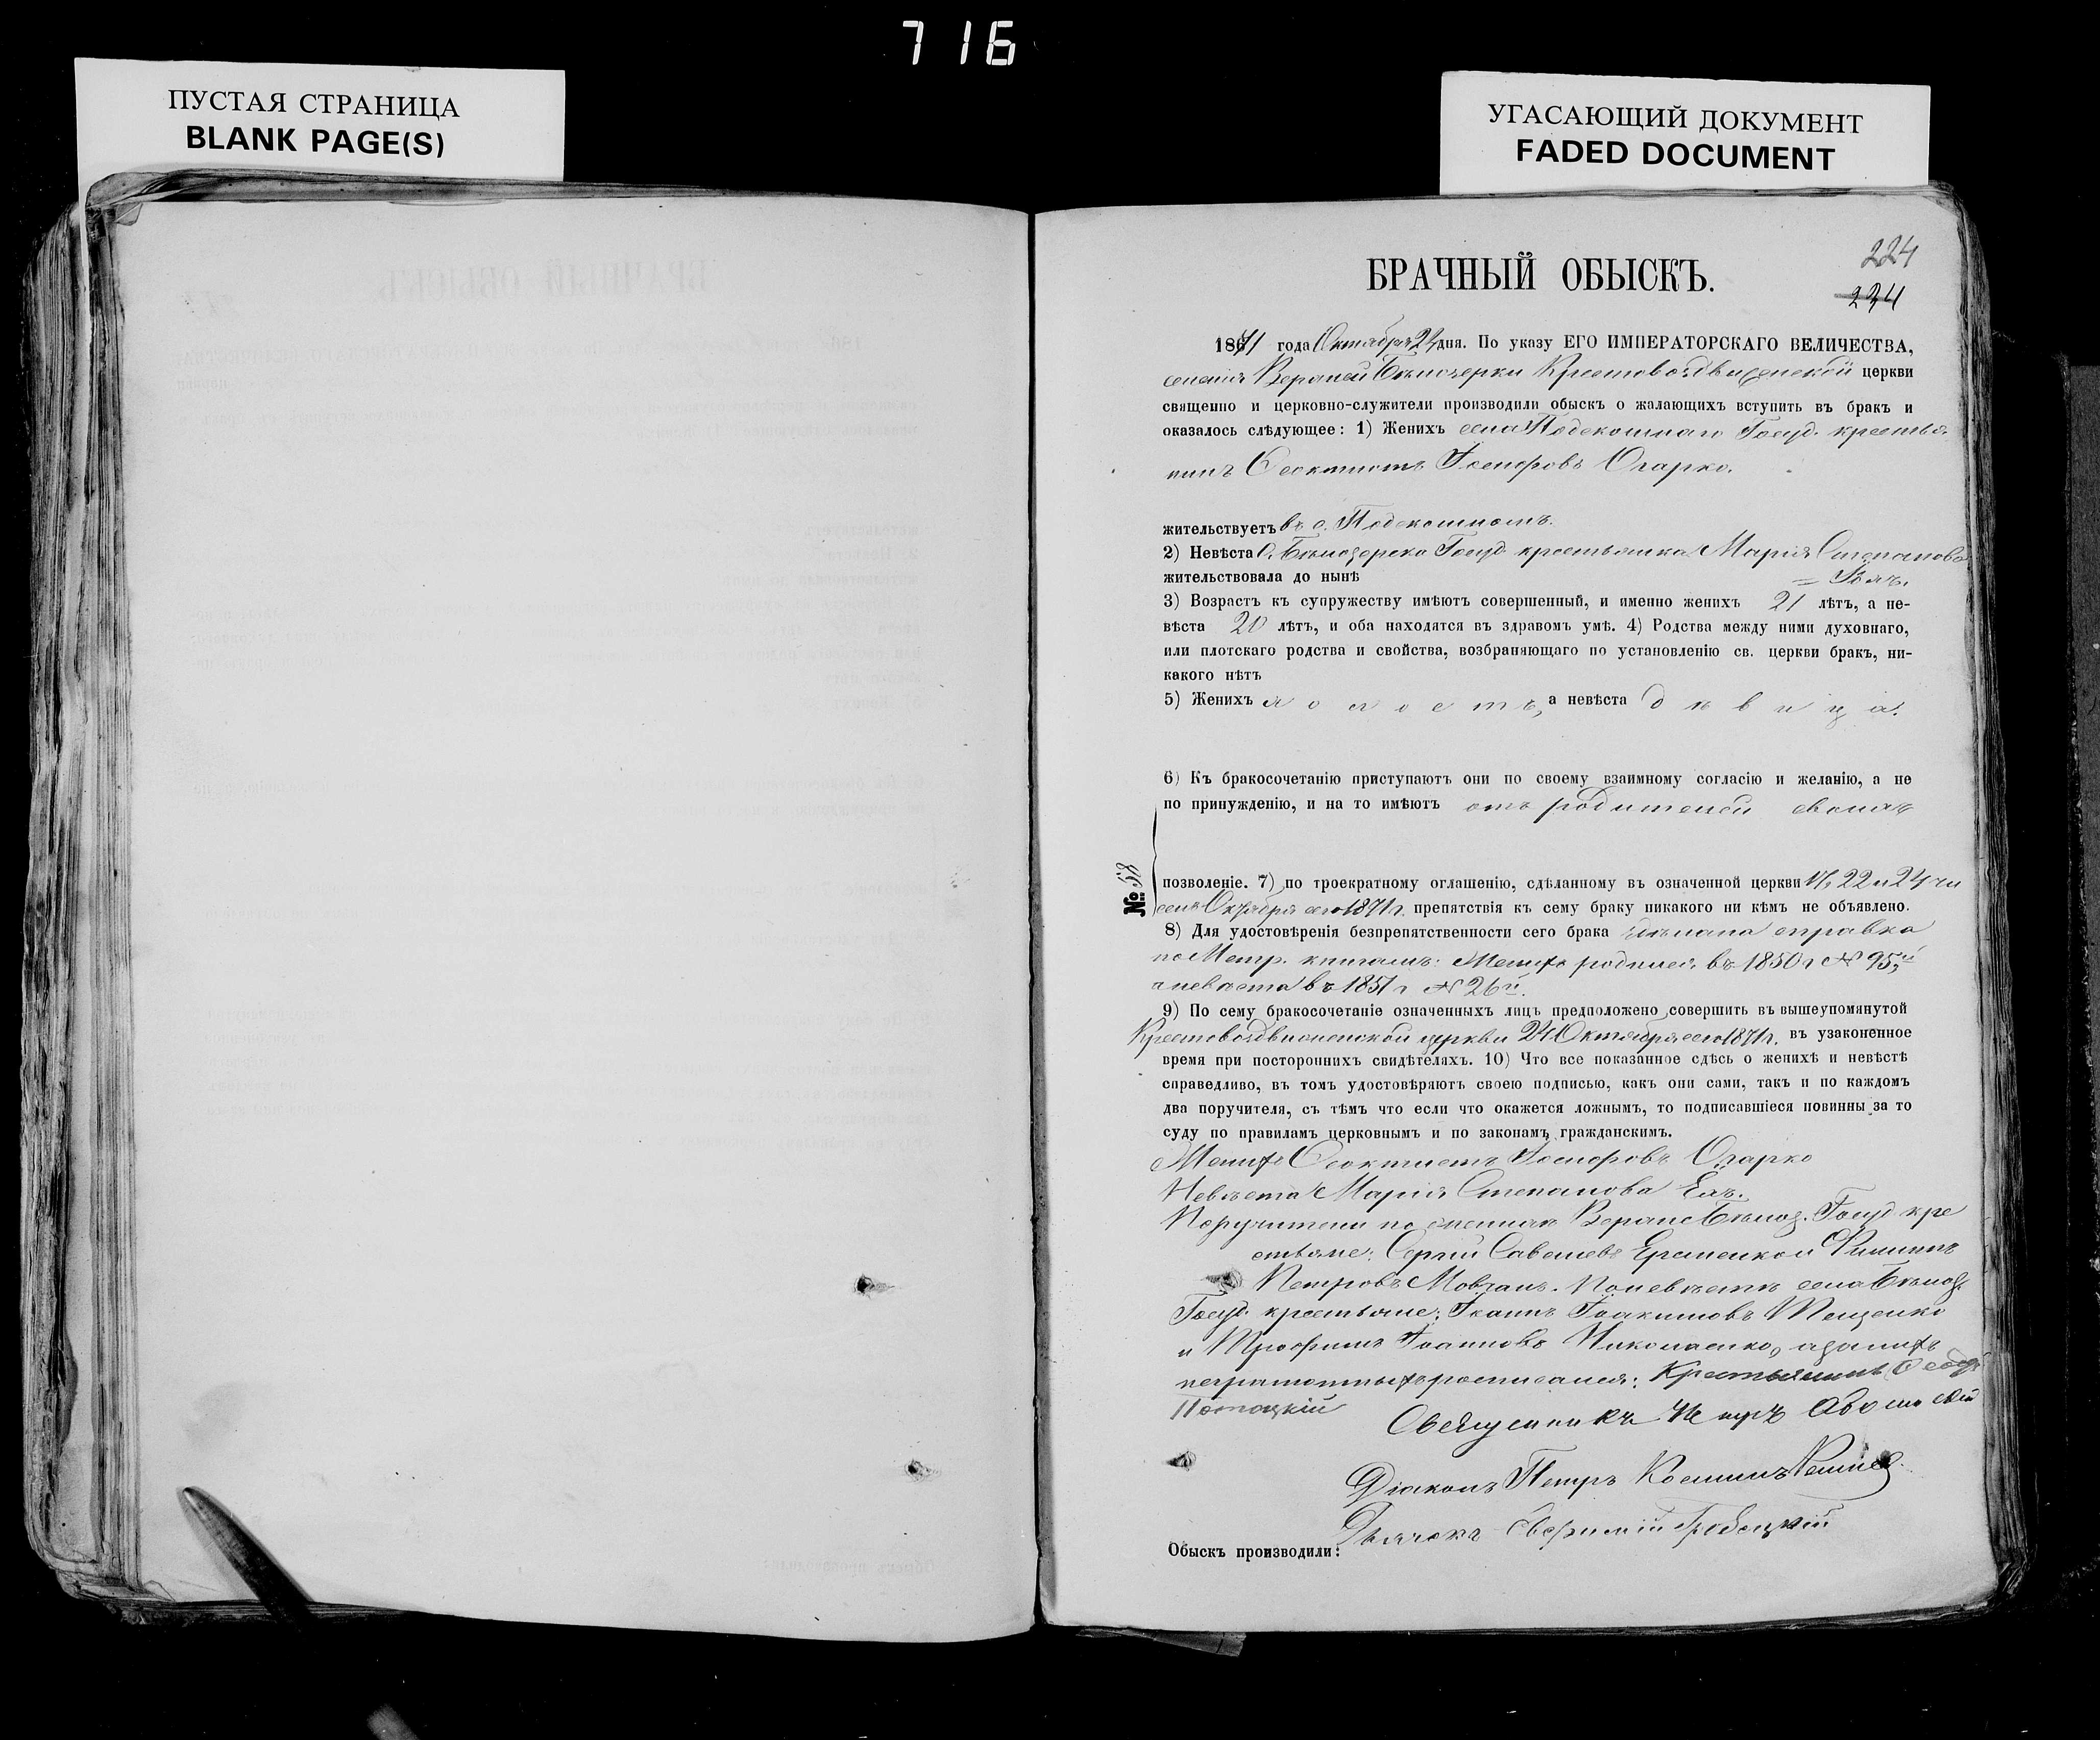 716
ПУСТАЯ СТРАНИЦА
BLANK PAGE(S)
УГАСАЮЩИЙ ДОКУМЕНТ
FADED DOCUMENT
224
224
БРАЧНЫЙ ОБЫСКЪ.
1871 года Октября 24 дня. По указу ЕГО ИМПЕРАТОРСКАГО ВЕЛИЧЕСТВА,
Крестовоздвиженской церкви
священно и церковно-служители производили обыскъ о жалающихъ вступить въ бракъ и
оказалось слѣдующее: 1) Женихъ села Госуд. крестья
нинъ Феоктистъ Іосифовъ Огарко.
жительствуетъ въ с.
2) Невѣста С. Госуд. крестьянка Марія Степанова
жительствовала до нынѣ
3) Возрастъ къ супружеству имѣютъ совершенный, и именно женихъ 21 лѣтъ, а не-
вѣста 20 лѣтъ, и оба находятся въ здравомъ умѣ. 4) Родства между ними духовнаго,
или плотскаго родства и свойства, возбраняющаго по установленію св. церкви бракъ, ни-
какого нѣтъ
5) Женихъ холостъ, а невѣста дѣвица.
6) Къ бракосочетанію приступаютъ они по своему взаимному согласію и желанію, а не
по принужденію, и на то имѣютъ отъ родителей своихъ
№ 58
позволеніе. 7) по троекратному оглашенію, сдѣланному въ означенной церкви 17, 22 и 24 чи
селъ Октября сего 1871 г. препятствія къ сему браку никакого ни кѣмъ не объявлено.
8) Для удостовѣренія безпрепятственности сего брака сдѣлана справка
по Метр. книгамъ: Женихъ родился въ 1850 г № 95й
а невѣста въ 1851 г № 26й.
9) По сему бракосочетаніе означенныхъ лицъ предположено совершить въ вышеупомянутой
Крестовоздвиженской церкви 24 Октября сего 1871 г. въ узаконенное
время при постороннихъ свидѣтеляхъ. 10) Что все показанное сдѣсь о женихѣ и невѣстѣ
справедливо, въ томъ удостовѣряютъ своею подписью, какъ они сами, такъ и по каждомъ
два поручителя, съ тѣмъ что если что окажется ложнымъ, то подписавшіеся повинны за то
суду по правиламъ церковнымъ и по законамъ гражданскимъ.
Женихъ Феоктистъ Іосифовъ Огарко
Невѣста Марія Степанова
Поручители по женихѣ Госуд. кре
стьяне: Сергій Филиппъ
Петровъ Мовчанъ. По невѣстѣ села Бѣлоз.
Госуд. крестьяне: Іоаннъ Іоакимовъ Тещенко
и Трофимъ Іоанновъ Николаенко, а за нихъ
неграмотныхъ росписался: Крестьянинъ
Потоцкій
Священникъ Петръ
Діаконъ Петръ Космичъ
Дьячокъ Евфимій
Обыскъ производили: